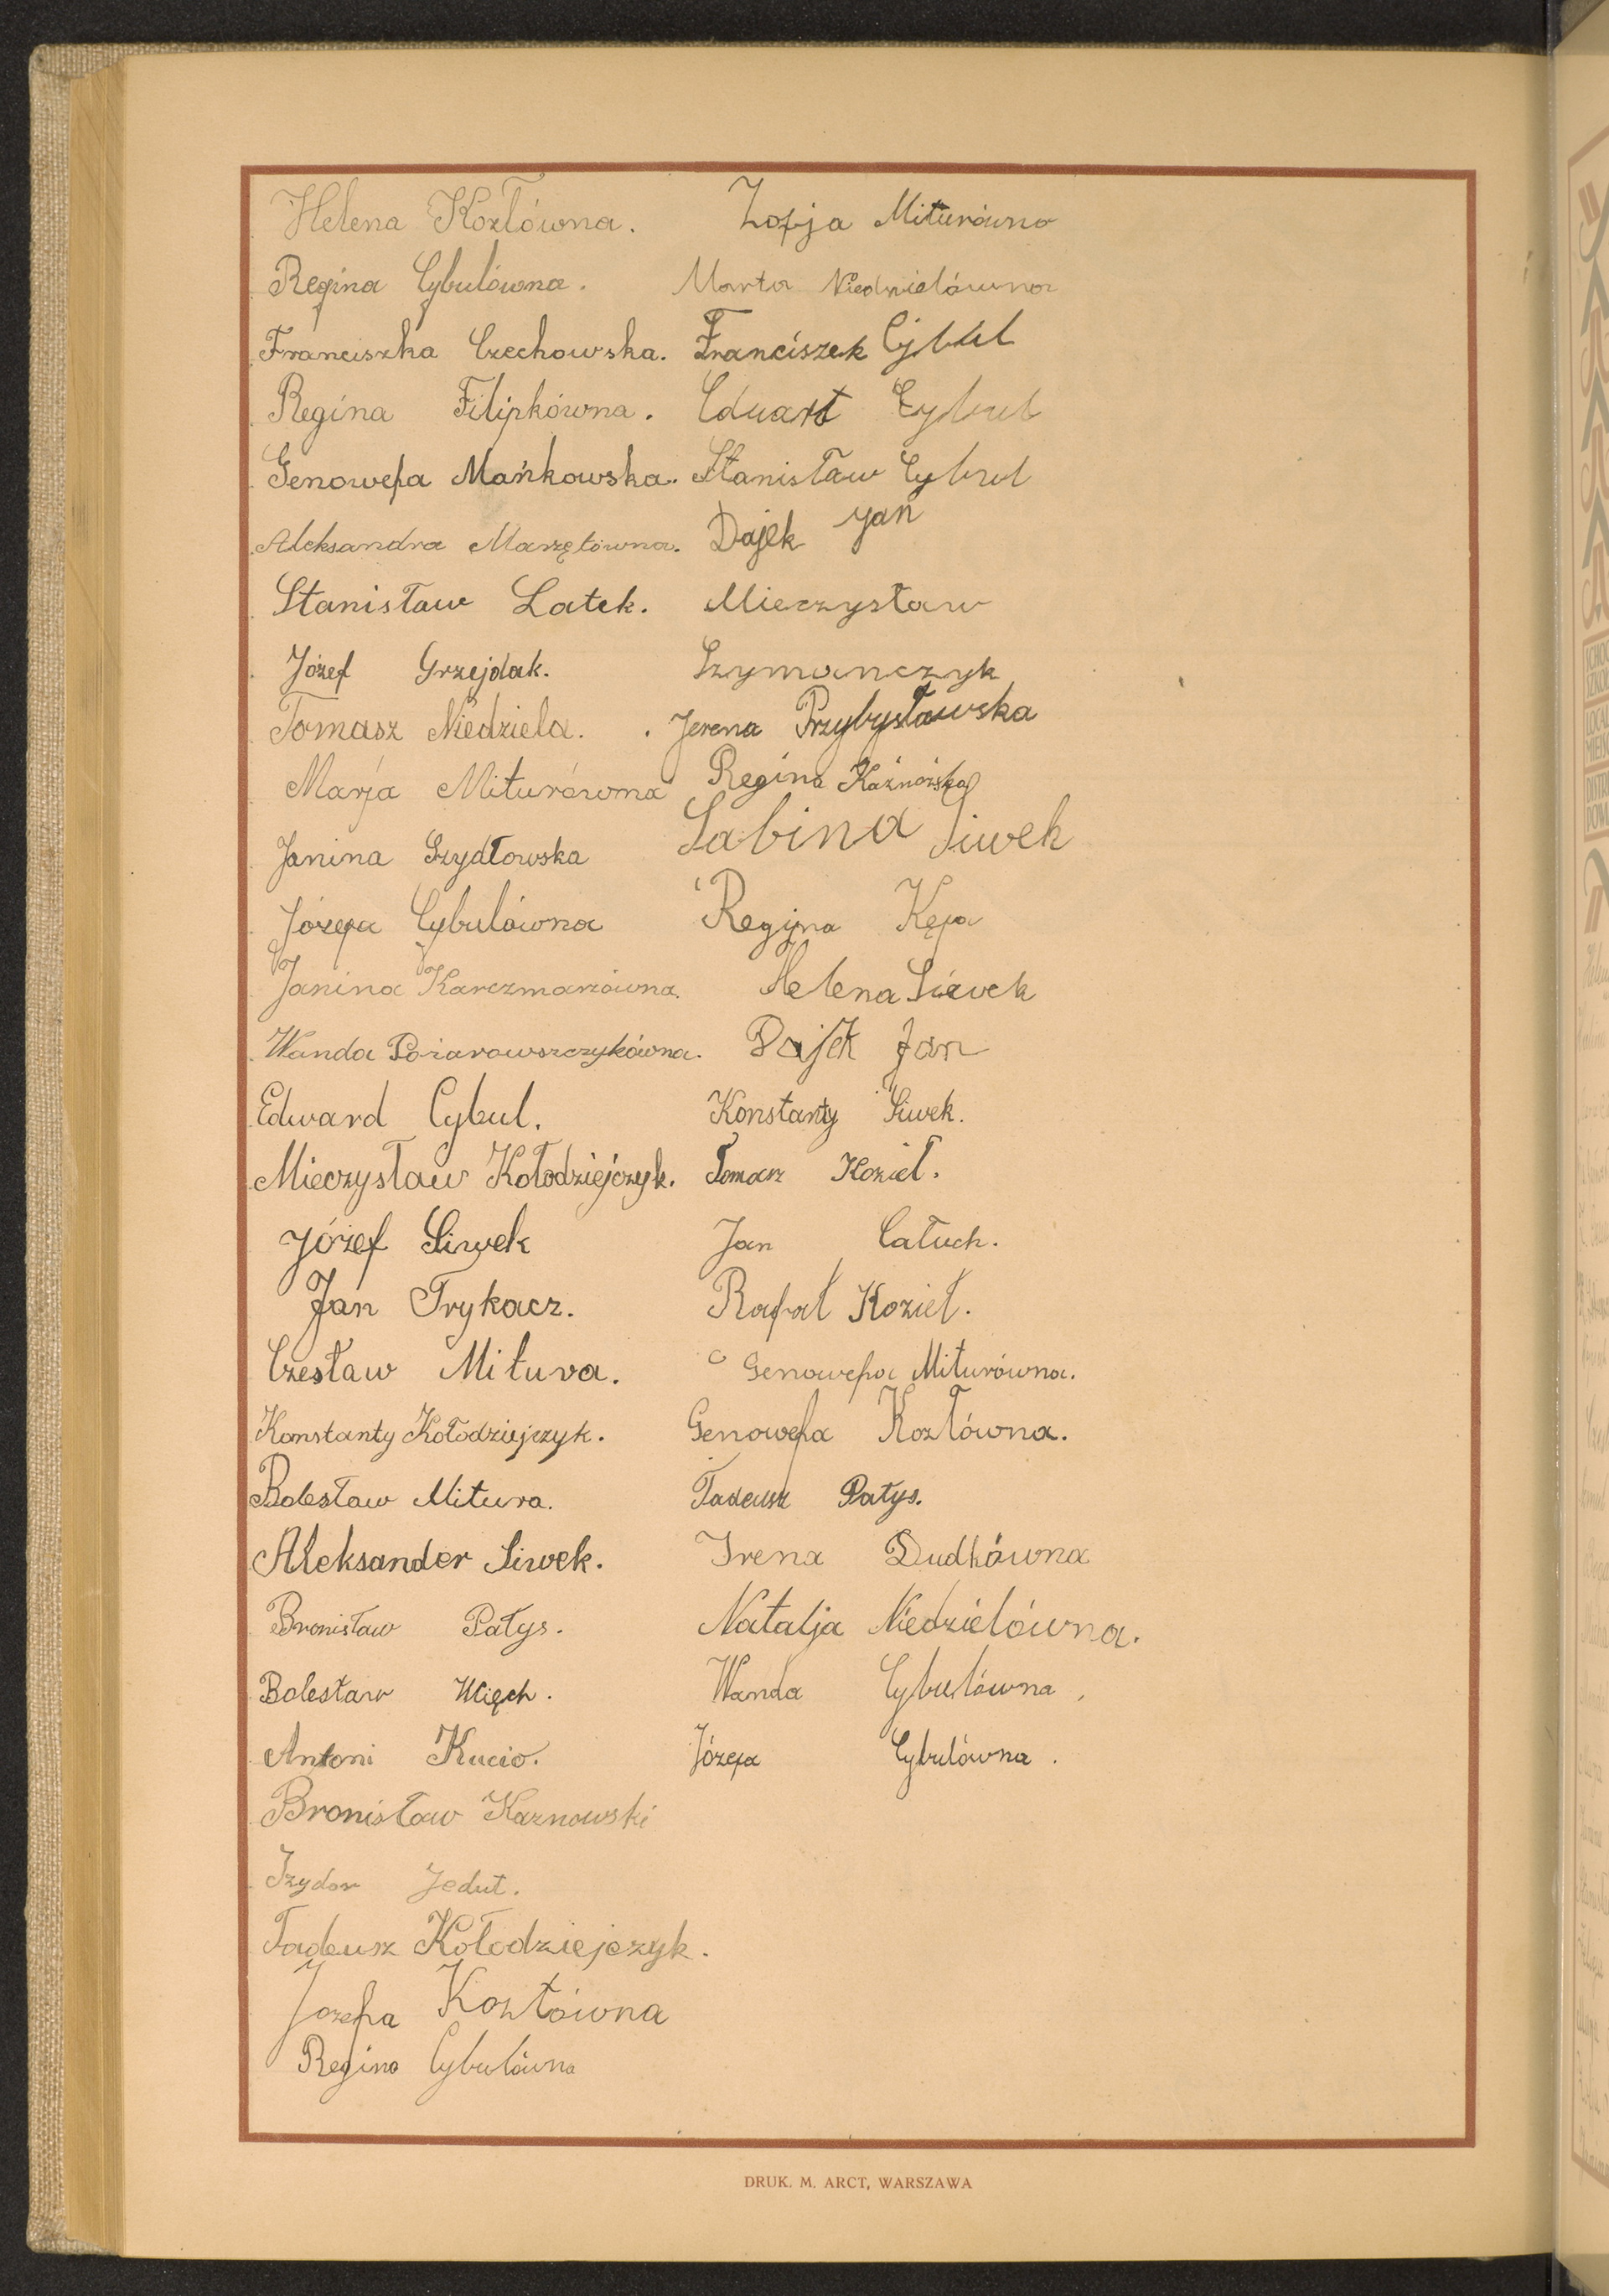 Helena Kozłówna.
Regina Cybulówna.
Franciszka Czechowska.
Regina Filipkówna.
Genowefa Mańkowska.
Aleksandra Marzętówna.
Stanisław Latek.
Józef Grzejdak.
Tomasz Niedziela.
Marja Miturówna
Janina Szydłowska
Józefa Cybulówna
Janina Karczmarzówna.
Wanda Pożarowszczykówna.
Edward Cybul.
Mieczysław Kołodziejczyk.
Józef Siwek
Jan Trykacz.
Czesław Mitura.
Konstanty Kołodziejczyk.
Bolesław Mitura.
Aleksander Siwek.
Bronisław Patys.
Bolesław Więch.
Antoni Kucio.
Bronisław Kaznowski
Izydor Jedut.
Tadeusz Kołodziejczyk.
Jozefa Kozłówna
Regina Cybulówna
Zofja Miturówna
Marta Niedzielówna
Franciszek Cybul
Eduart Cybul
Stanisław Cybul
Dajek Jan
Mieczysław
Szymanczyk
Jerena Przybysławska
Regina
Sabina Siwek
Regina Kępa
Helena Siwek
Dajek Jan
Konstanty Siwek.
Tomasz Kozieł.
Jan Całuch.
Rafał Kozieł.
Genowefa Miturówna.
Genowefa Kozłówna.
Tadeusz Patys.
Irena Dudkówna
Natalja Niedzielówna.
Wanda Cybulówna,
Józefa Cybulówna.
DRUK. M. ARCT, WARSZAWA